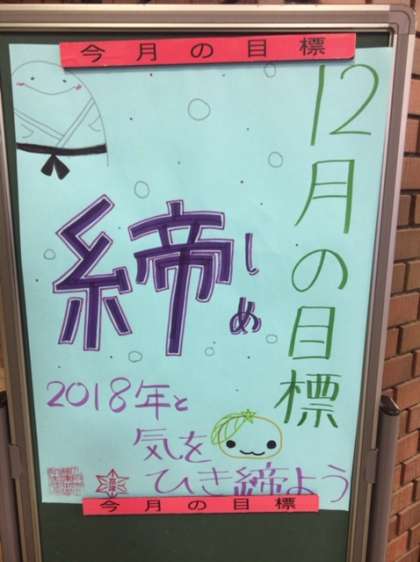 今月の目標
12月の目標
締しめ
2018年と
気を
ひき締よう
今月の目標